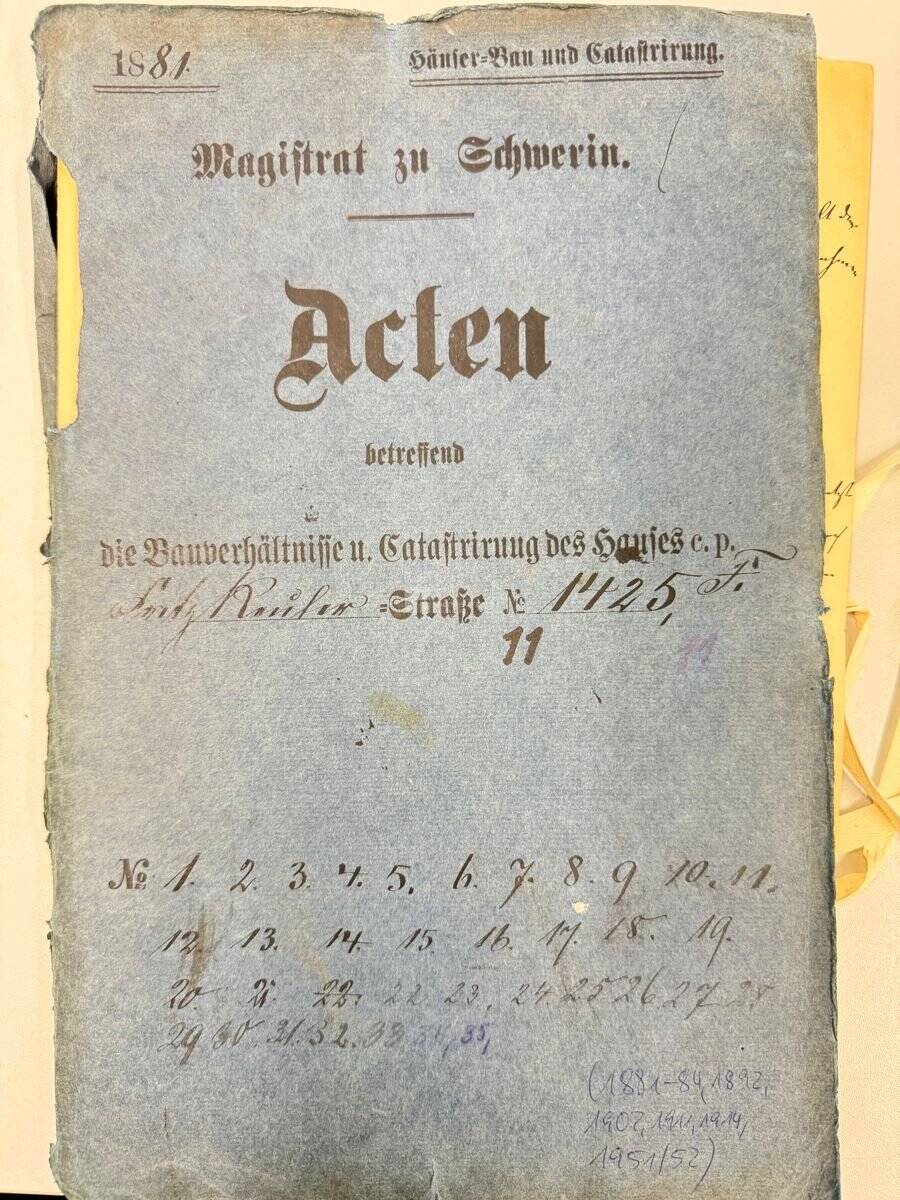 1881.
Häuser-Bau und Catastrirung.
Magistrat zu Schwerin.
Acten
betreffend
die Bauverhältnisse u. Catastrirung des Hauses c. p.
Fritz Reuter-Straße № 1425, F.
11 11
№ 1. 2. 3. 4. 5. 6. 7. 8. 9 10. 11.
12. 13. 14 15. 16. 17. 18. 19.
20. 21. 22. 22. 23. 24. 25 26 27 28
29 30. 31. 32. 33 34, 35,
(1881-84, 1892,
1902, 1911, 1914,
1951/52)